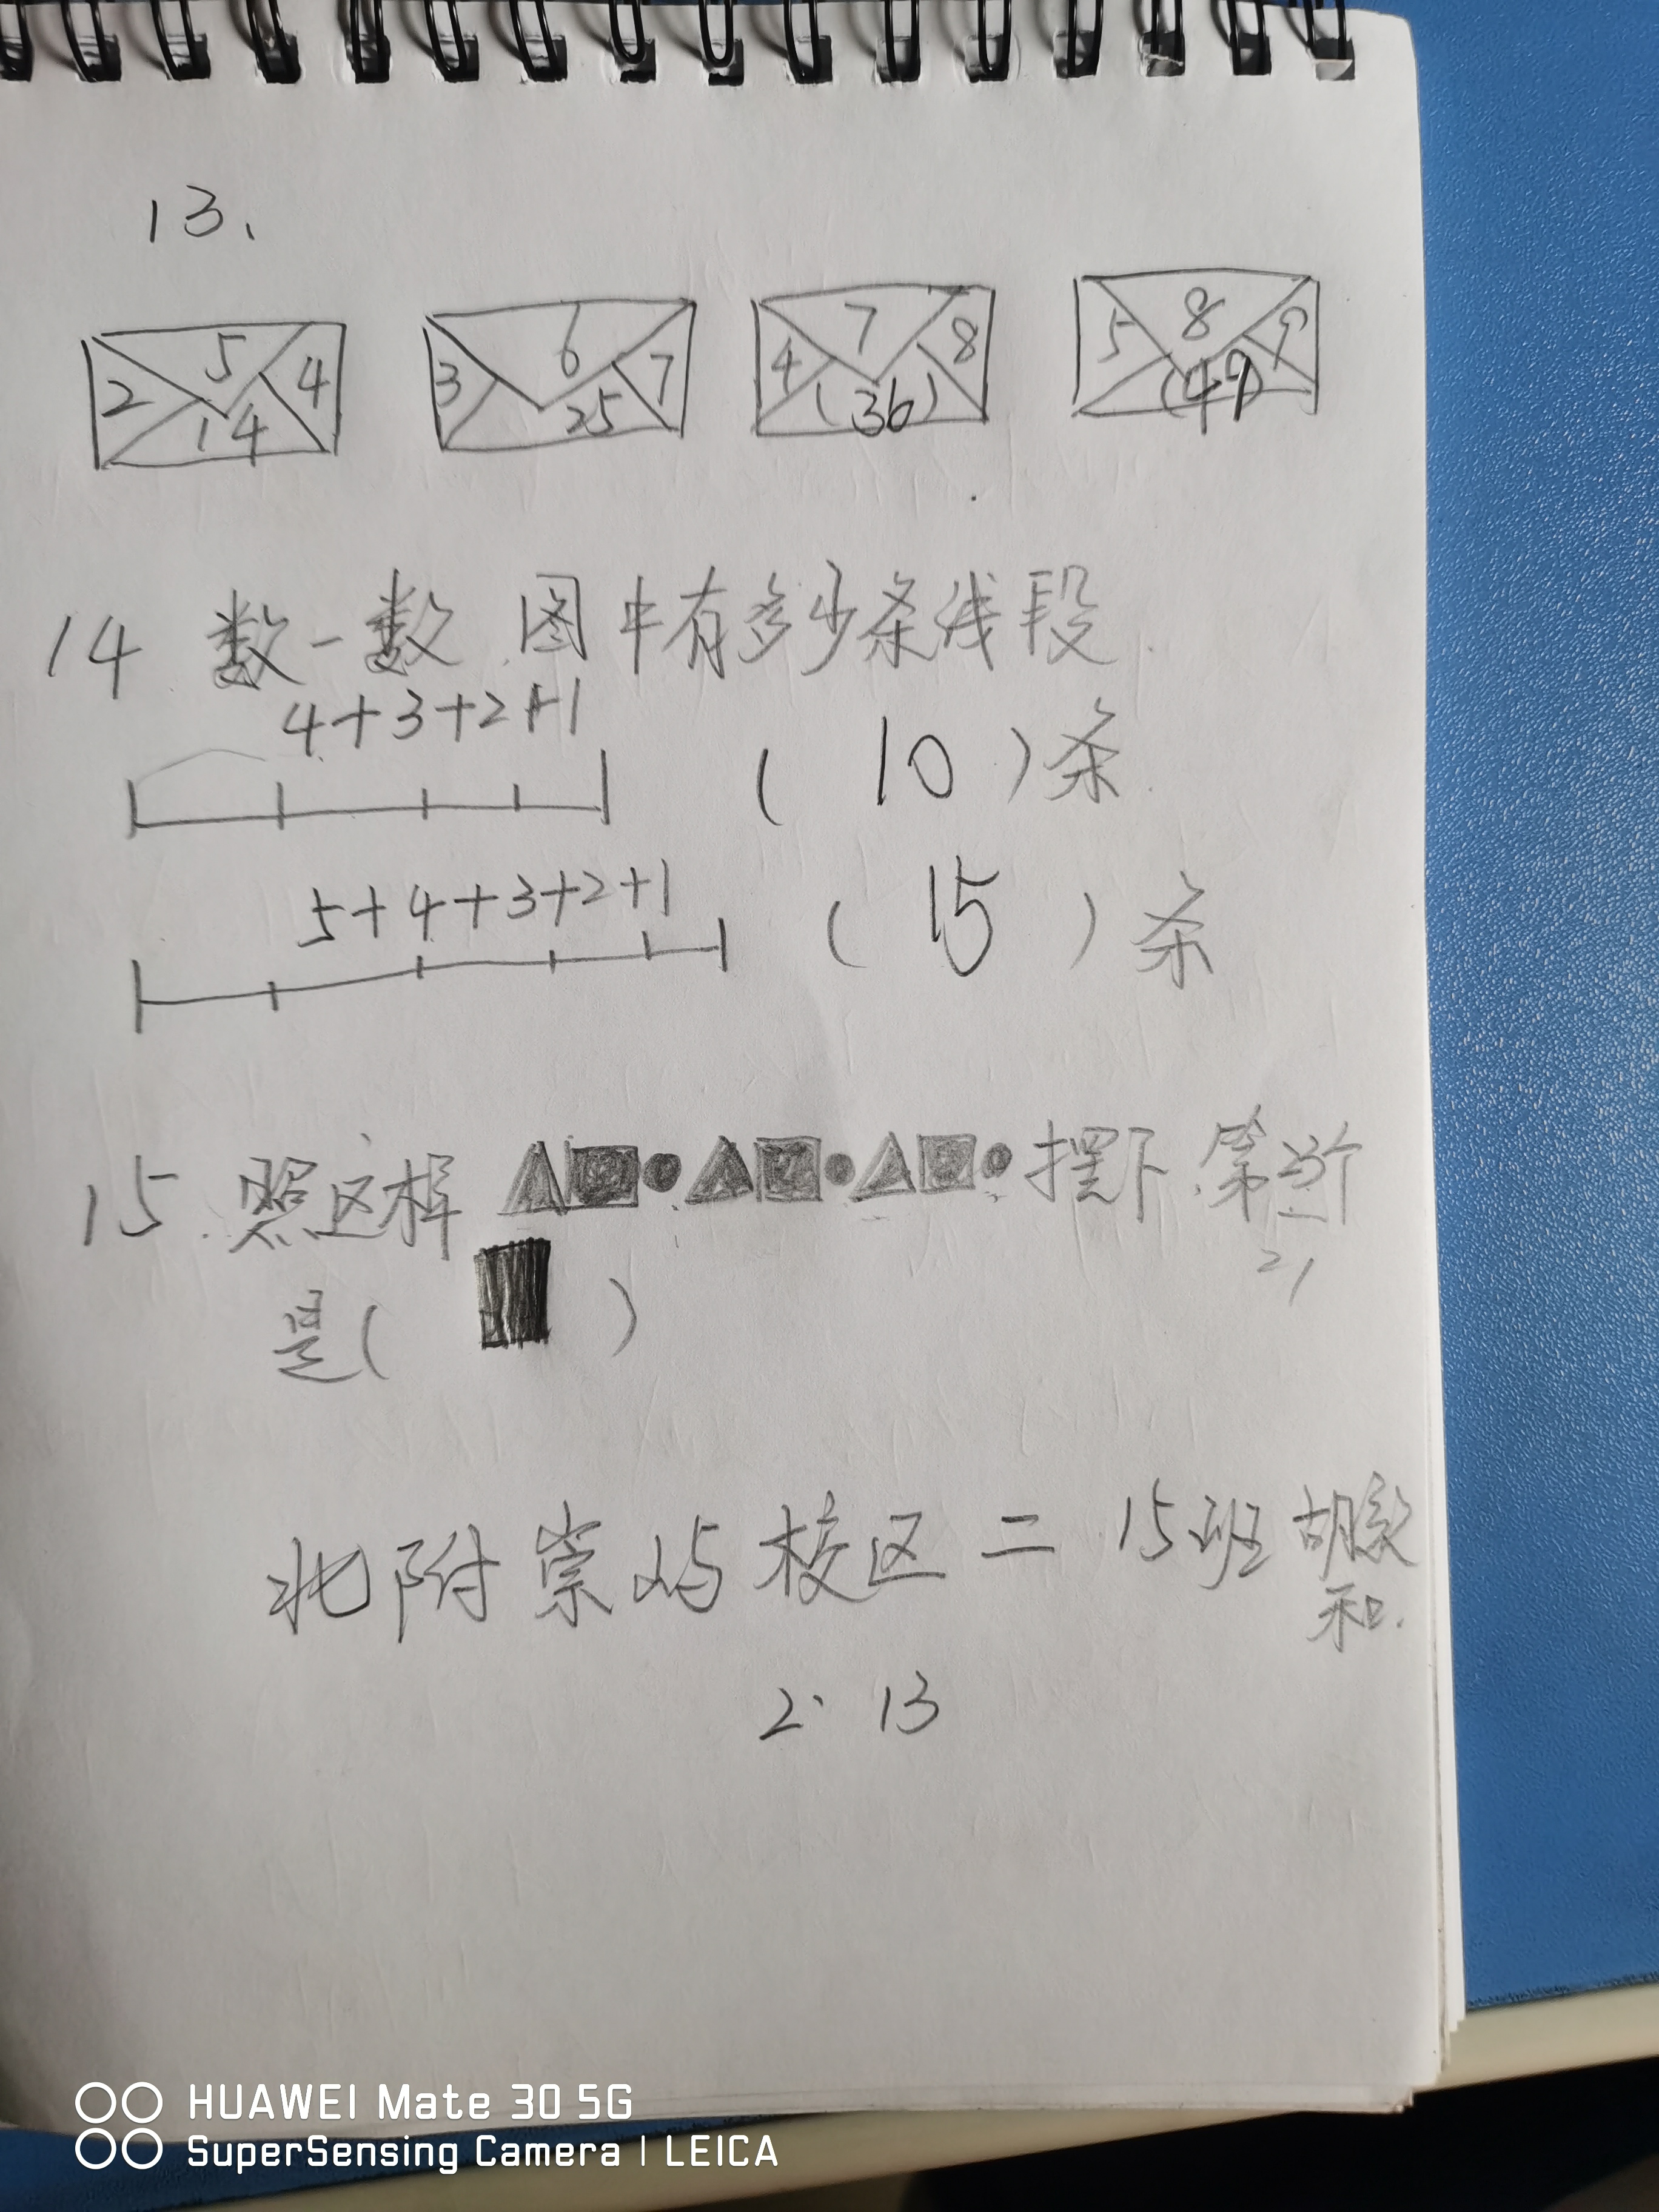 13.
5 6 7 8
2 4 3 7 4 8 5 9
14 25 (36) (49)
14 数一数.图中有多少条线段.
4+3+2+1
( 10 )条.
5+4+3+2+1
( 15 )条
15.照这样 摆下.第 个
21
是( )
北附崇屿校区二 15班 胡
和.
2.13
HUAWEI Mate 30 5G
SuperSensing Camera | LEICA